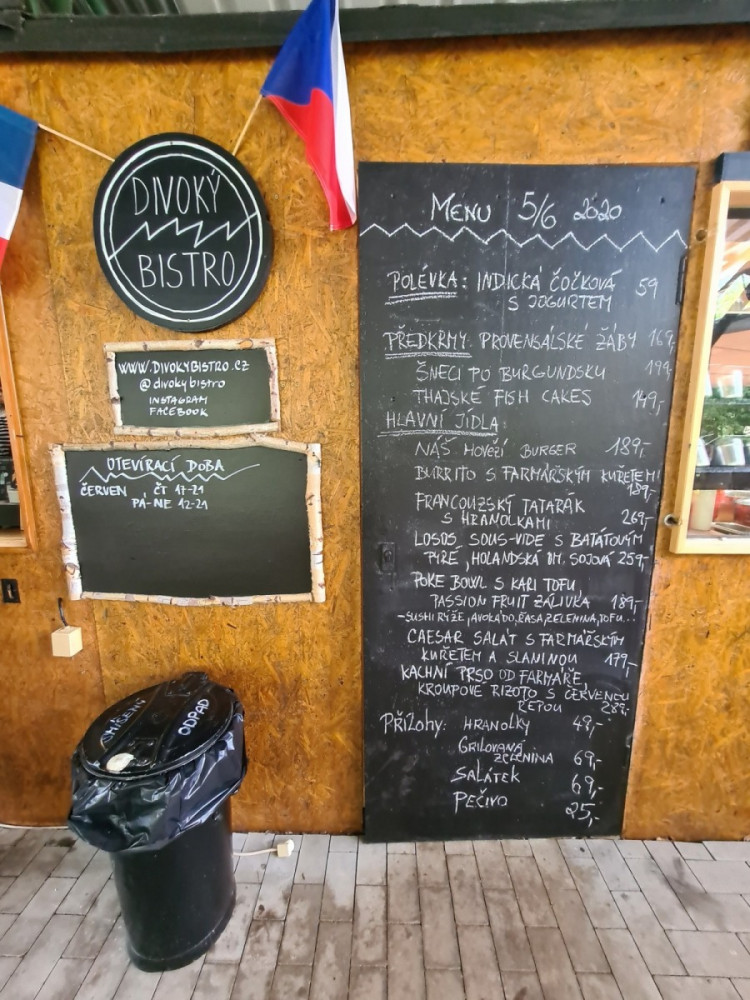 DIVOKÝ
BISTRO
WWW.DIVOKYBISTRO.CZ
@divokybistro
INSTAGRAM
FACEBOOK
OTEVÍRACÍ DOBA
ČERVEN ČT 17-21
PÁ-NE 12-21
SMÍŠENÝ
ODPAD
MENU 5/6 2020
POLÉVKA: INDICKÁ ČOČKOVÁ 59
S JOGURTEM
PŘEDKRMY: PROVENSÁLSKÉ ŽÁBY 169,-
ŠNECI PO BURGUNDSKU 199,-
THAJSKÉ FISH CAKES 149,-
HLAVNÍ JÍDLA:
NÁŠ HOVĚZÍ BURGER 189,-
BURRITO S FARMÁŘSKÝM KUŘETEM
189,-
FRANCOUZSKÝ TATARÁK
S HRANOLKAMI 269,-
LOSOS SOUS-VIDE S BATÁTOVÝM
PYRÉ, HOLANDSKÁ OM. SOJOVÁ 259,-
POKE BOWL S KARI TOFU,
PASSION FRUIT ZÁLIVKA 189,-
-SUSHI RÝŽE, AVOKÁDO, ŘASA, ZELENINA, TOFU...
CAESAR SALÁT S FARMÁŘSKÝM
KUŘETEM A SLANINOU 179,-
KACHNÍ PRSO OD FARMÁŘE
KROUPOVÉ RIZOTO S ČERVENOU
ŘEPOU 289,-
PŘÍLOHY: HRANOLKY 49,-
GRILOVANÁ
ZELENINA 69,-
SALÁTEK 69,-
PEČIVO 25,-